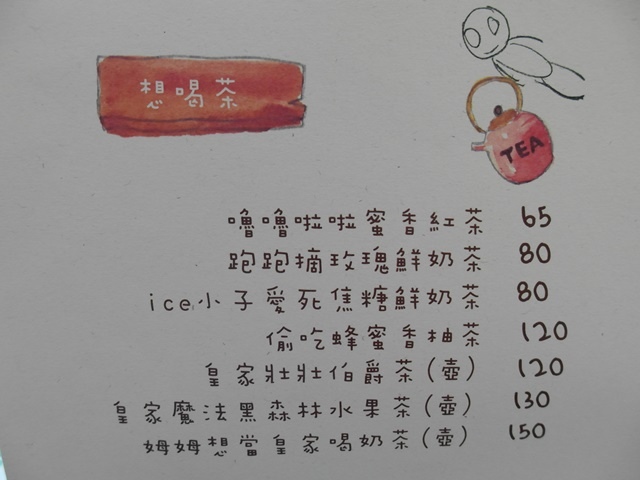 想喝茶
TEA
嚕嚕啦啦蜜香紅茶 65
跑跑摘玫瑰鮮奶茶 80
ice小子愛死焦糖鮮奶茶 80
偷吃蜂蜜香柚茶 120
皇家壯壯伯爵茶(壺) 120
皇家魔法黑森林水果茶(壺) 130
姆姆想當皇家喝奶茶(壺) 150